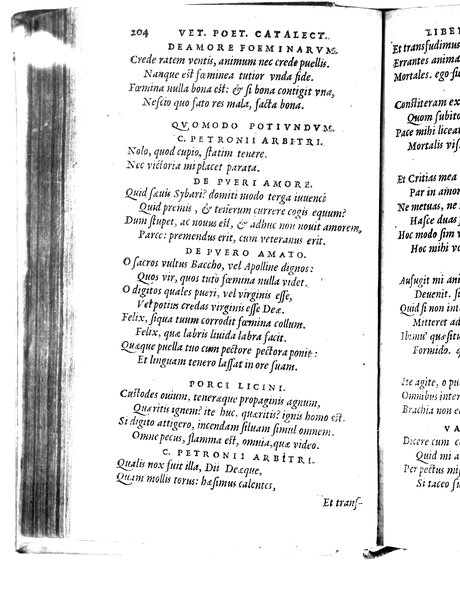 204 VET. POET. CATALECT.
DE AMORE FOEMINARVM.
Crede ratem ventis, animum nec crede puellis.
Nanque est fœminea tutior vnda fide.
Fœmina nulla bona est: & si bona contigit vna,
Nescio quo fato res mala, facta bona.
QVOMODO POTIVNDVM.
C. PETRONII ARBITRI.
Nolo, quod cupio, statim tenere.
Nec victoria mi placet parata.
DE PVERI AMORE.
Quid sæuis Sybari? domiti modo terga iuuenci
Quid premis, & tenerum currere cogis equum?
Dum stupet, ac nouus est, & adhuc non nouit amorem,
Parce: premendus erit, cum veteranus erit.
DE PVERO AMATO.
O sacros vultus Baccho, vel Apolline dignos:
Quos vir, quos tuto fœmina nulla videt.
O digitos quales pueri, vel virginis esse,
Vel potius credas virginis esse Deæ.
Felix, siqua tuum corrodit fœmina collum.
Felix, quæ labris liuida labra facit.
Quæque puella tuo cum pectore pectora ponit:
Et linguam tenero lassat in ore suam.
PORCI LICINI.
Custodes ouium, teneræque propaginis agnum,
Quæritis ignem? ite huc. quæritis? ignis homo est.
Si digito attigero, incendam siluam simul omnem.
Omne pecus, flamma est, omnia, quæ video.
C. PETRONII ARBITRI.
Qualis nox fuit illa, Dii Deæque,
Quam mollis torus: hæsimus calentes,
Et trans-
LIBE
Et transfudimus
Errantes anima
Mortales. ego su
Constiteram ex
Quom subito
Pace mihi liceat
Mortalis vis
Et Critias mea
Par in amor
Ne metuas, ne
Hasce duas
Hoc modo sim v
Hoc mihi v
Aufugit mi anim
Deuenit. si
Quid si non inte
Mitteret ad
Ibimu' quæsit
Formido. q
Ite agite, o pu
Omnibus inter
Brachia non
VA
Dicere cum
Quid mi a
Per pectus mi
Si taceo su